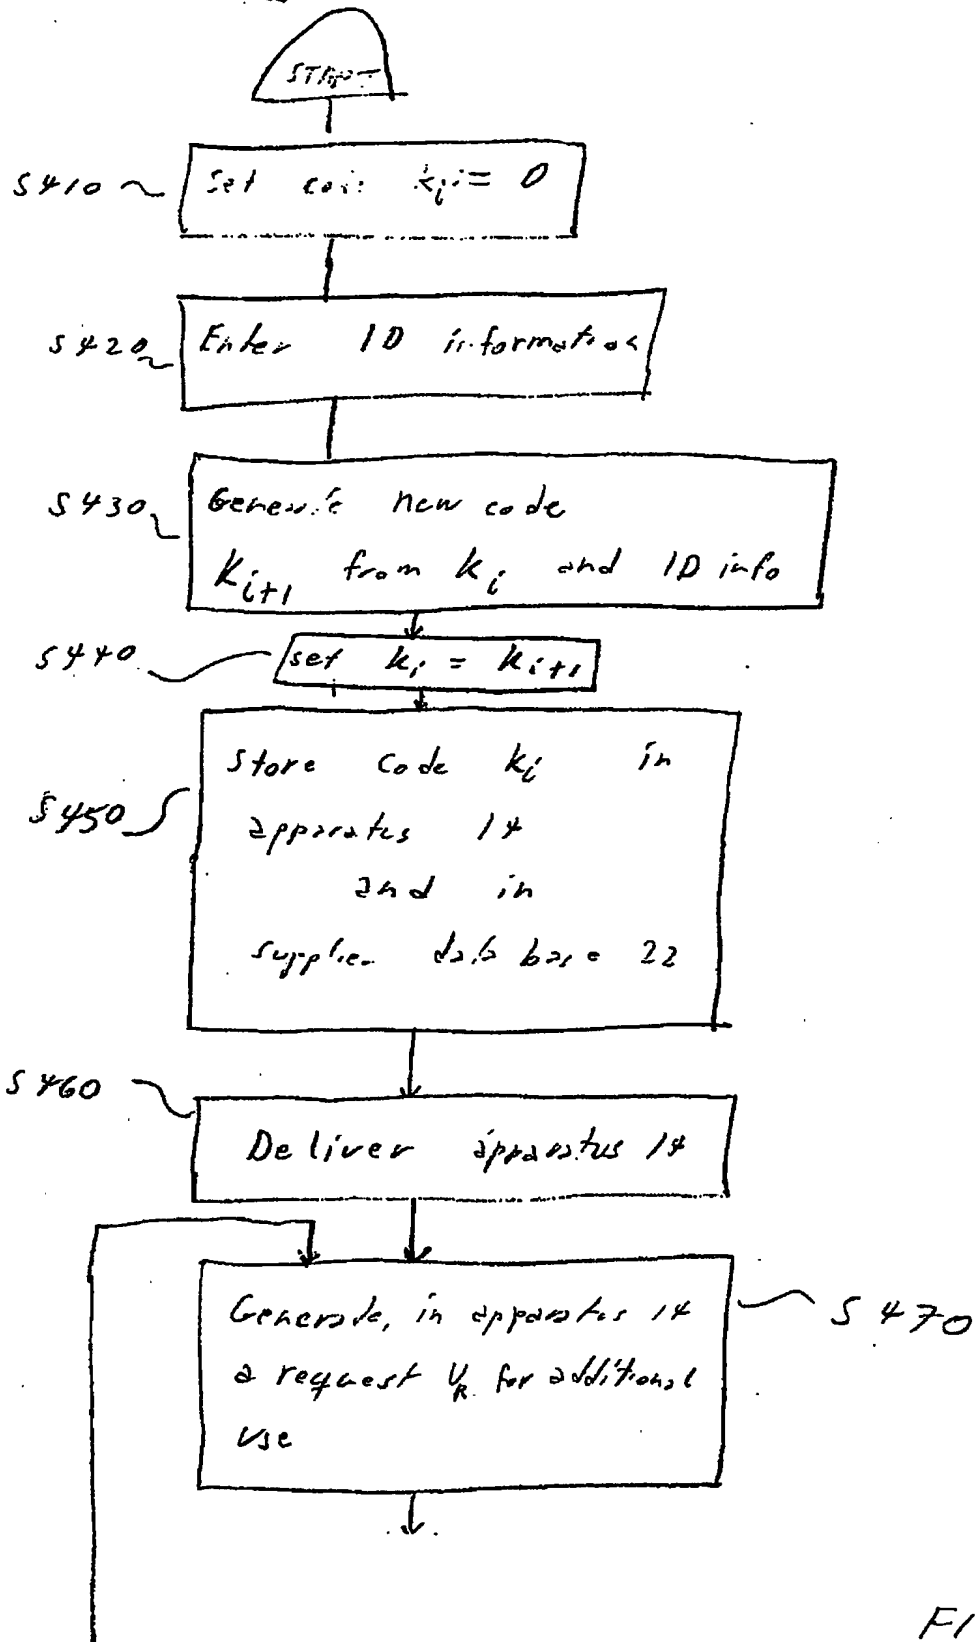 START
S410
Set code ki = 0
S420
Enter ID information
S430
Generate new code
Ki+1 from ki and ID info
S440
set ki = ki+1
S450
Store code ki in
apparatus 14
and in
supplier data base 22
S460
Deliver apparatus 14
S470
Generate, in apparatus 14
a request UR for additional
use
FI